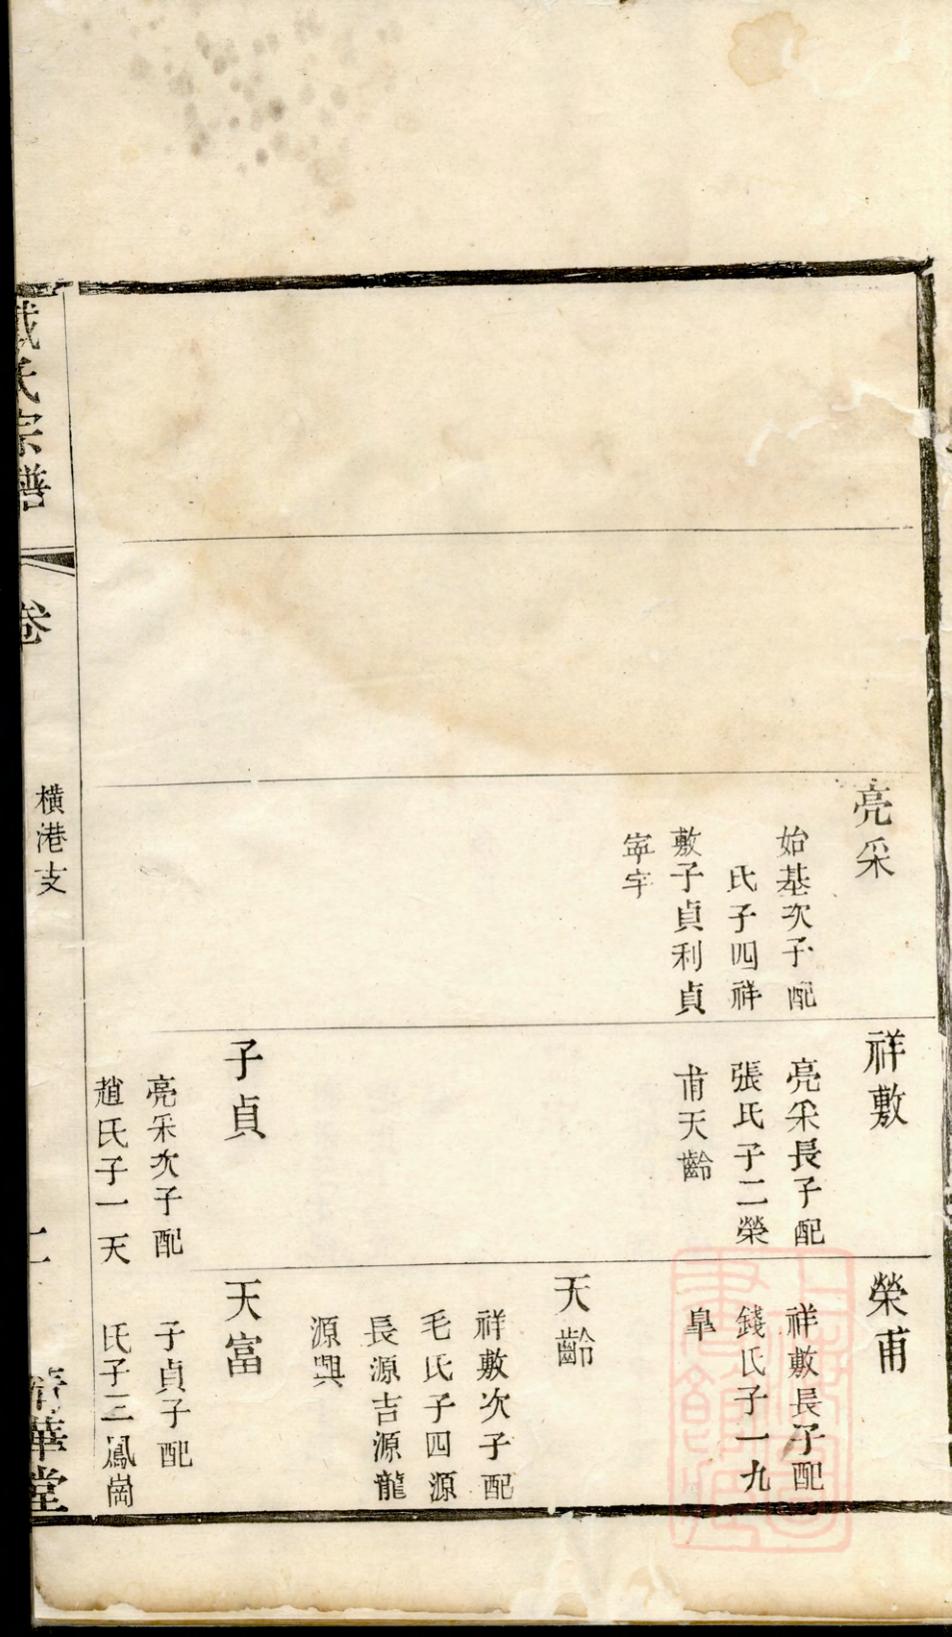 亮采
始基次子配
氏子四祥
敷子貞利貞
寧宇
祥敷
亮采長子配
張氏子二榮
甫天齡
子貞
亮采次子配
趙氏子一天
榮甫
祥敷長子配
錢氏子一九
皐
天齡
祥敷次子配
毛氏子四源
長源吉源龍
源興
天富
子貞子配
氏子三鳳崗
氏宗譜
卷
橫港支
華堂